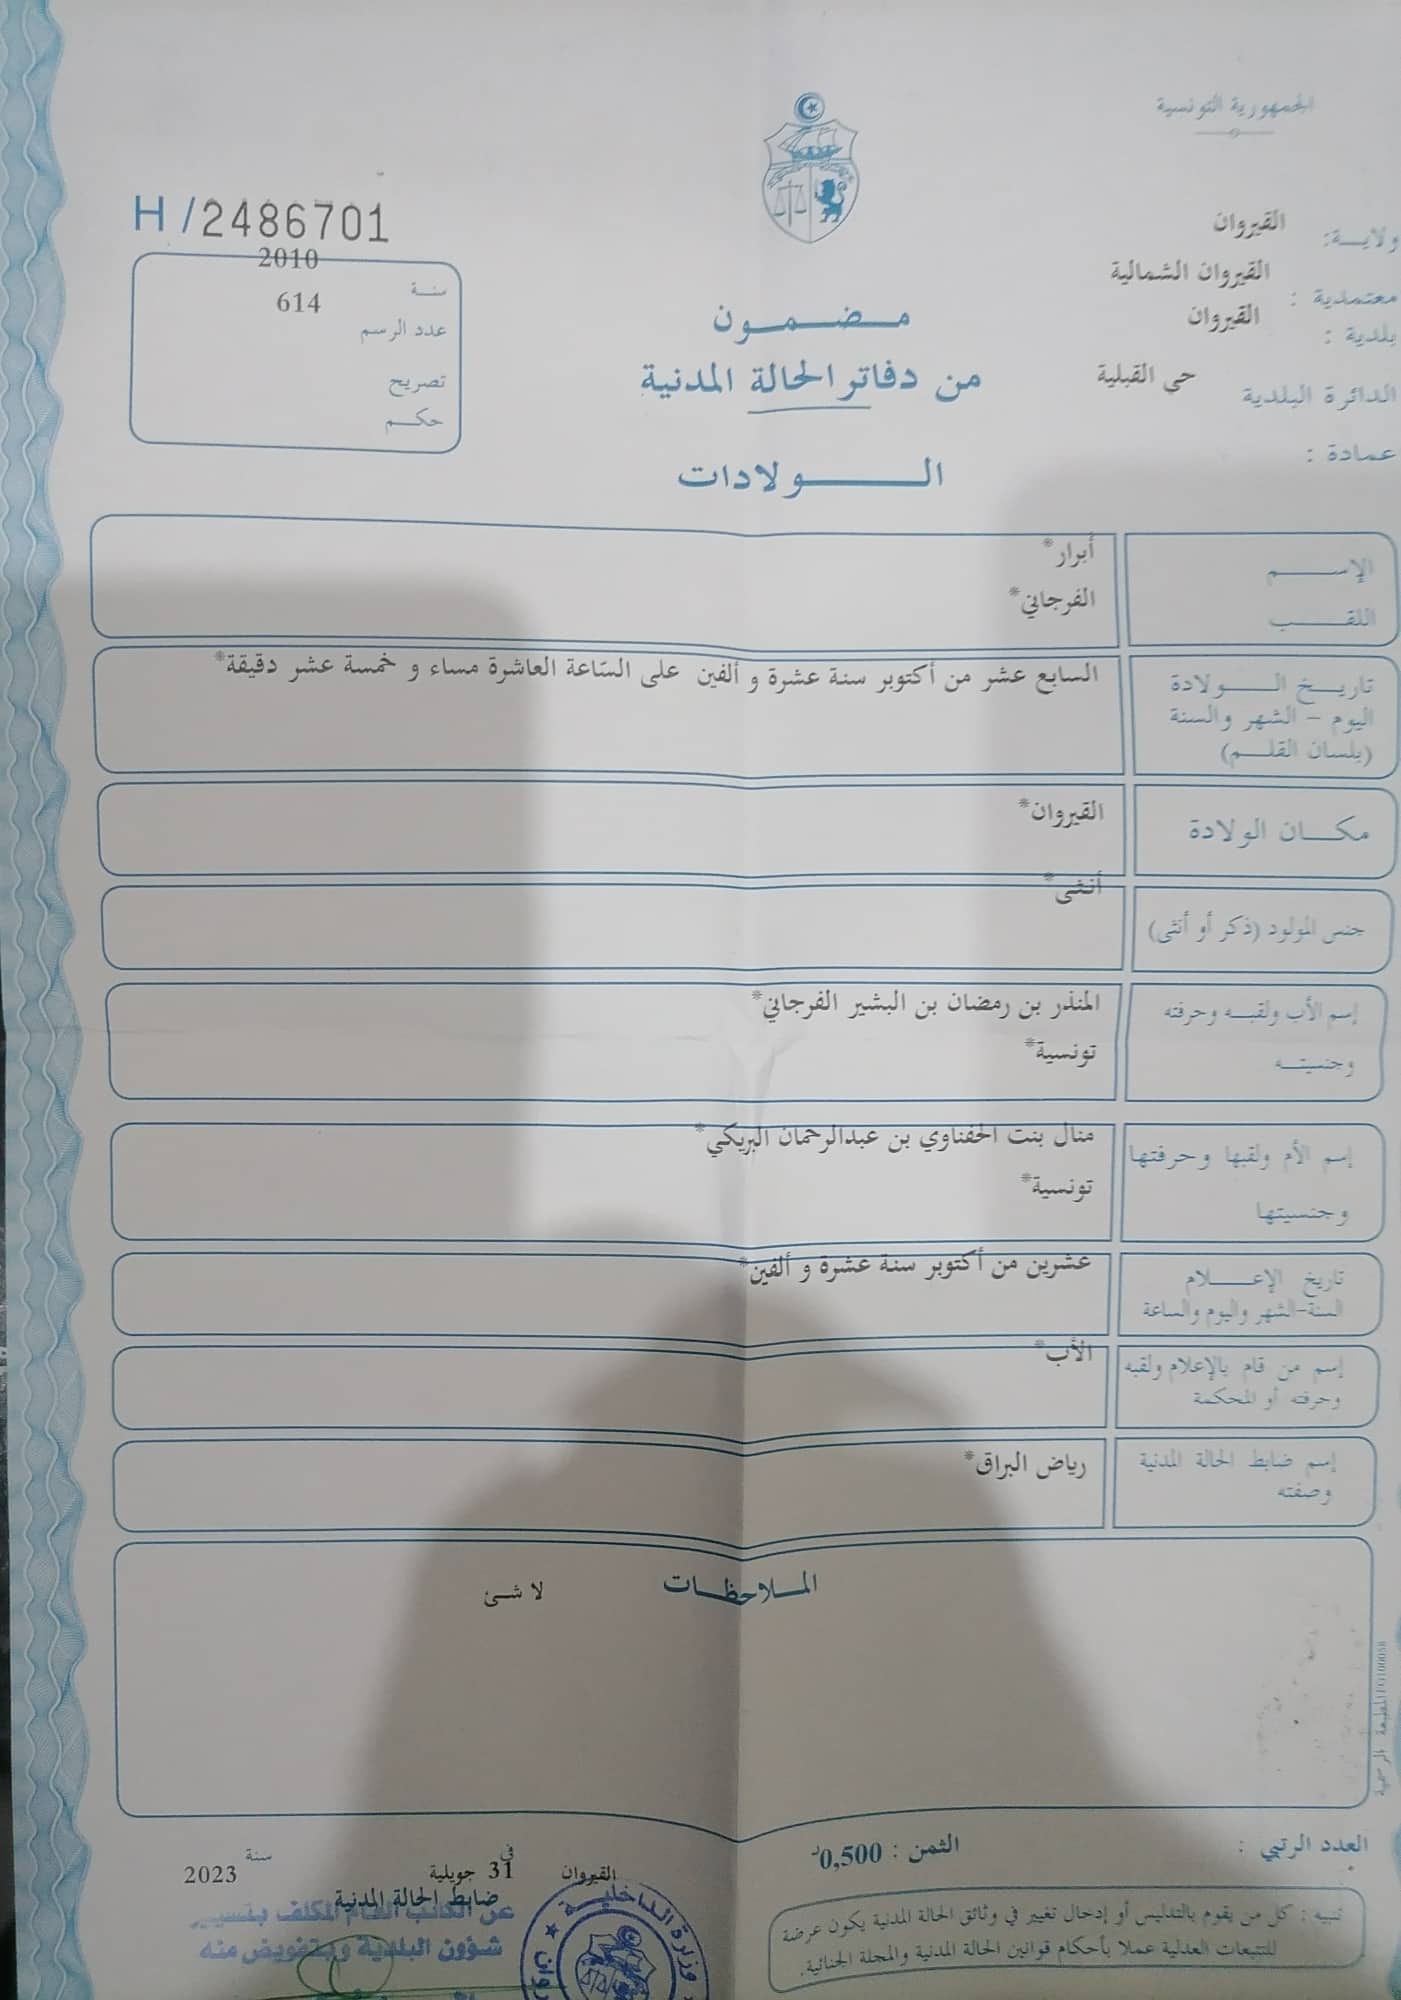 الجمهورية التونسية
ولاية: القيروان
معتمدية : القيروان الشمالية
بلدية : القيروان
الدائرة البلدية حي القبلية
عمادة :
H /2486701
سنة 2010
عدد الرسم 614
تصريح
حكم
مضمون
من دفاتر الحالة المدنية
الولادات
الإسم أبرار*
اللقب الفرجاني*
تاريخ الولادة السابع عشر من أكتوبر سنة عشرة و ألفين على السّاعة العاشرة مساء و خمسة عشر دقيقة*
اليوم - الشهر والسنة
(بلسان القلم)
مكان الولادة القيروان*
جنس المولود (ذكر أو أنثى) أنثى*
إسم الأب ولقبه وحرفته المنذر بن رمضان بن البشير الفرجاني*
وجنسيته تونسية*
إسم الأم ولقبها وحرفتها منال بنت الحفناوي بن عبدالرحمان البريكي*
وجنسيتها تونسية*
تاريخ الإعلام عشرين من أكتوبر سنة عشرة و ألفين*
السنة-الشهر واليوم والساعة
إسم من قام بالإعلام ولقبه الأب*
وحرفته أو المحكمة
إسم ضابط الحالة المدنية رياض البراق*
وصفته
الملاحظات لا شئ
المطبعة الرسمية
العدد الرتبي :
الثمن : 0,500د
القيروان في 31 جويلية سنة 2023
ضابط الحالة المدنية
عن الكاتب العام المكلف بتسيير
شؤون البلدية وبتفويض منه
وزارة الداخلية
تنبيه : كل من يقوم بالتدليس أو إدخال تغيير في وثائق الحالة المدنية يكون عرضة
للتتبعات العدلية عملا بأحكام قوانين الحالة المدنية والمجلة الجنائية.